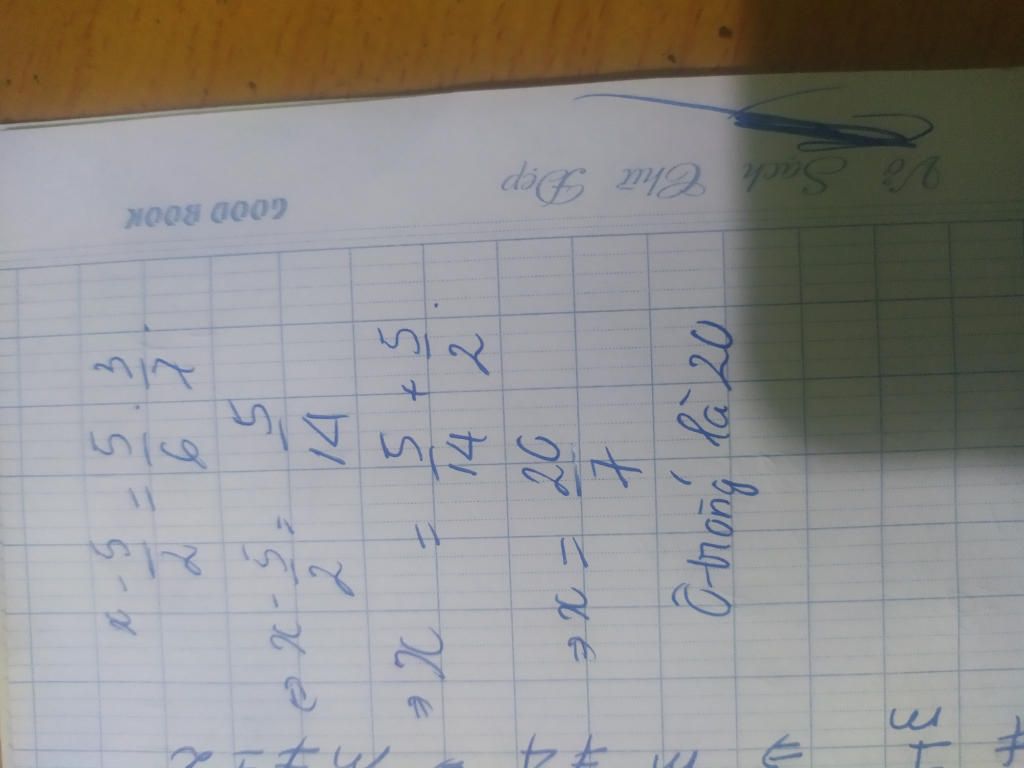 Vở Sạch Chữ Đẹp
GOOD BOOK
x - 5/2 = 5/6 . 3/7
⇔ x - 5/2 = 5/14
⇒ x = 5/14 + 5/2
⇒ x = 20/7
Ô trống là 20